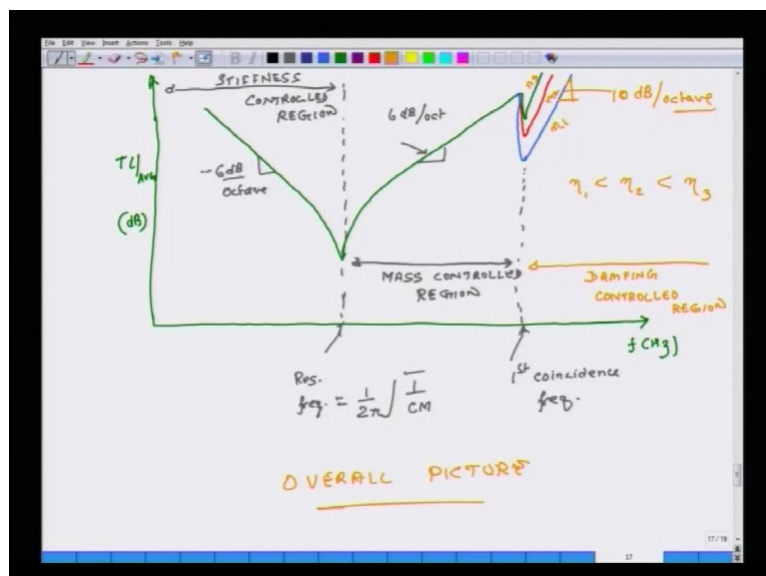 File Edit View Insert Actions Tools Help
STIFFNESS
CONTROLLED
REGION
6 dB/oct
10 dB/octave
η3
η2
η1
TL/Avg.
(dB)
-6 dB
octave
η1 < η2 < η3
MASS CONTROLLED
REGION
DAMPING
CONTROLLED
REGION
f (Hz)
Res.
freq. = 1/2π √1/CM
1st coincidence
freq.
OVERALL PICTURE
17/18
17